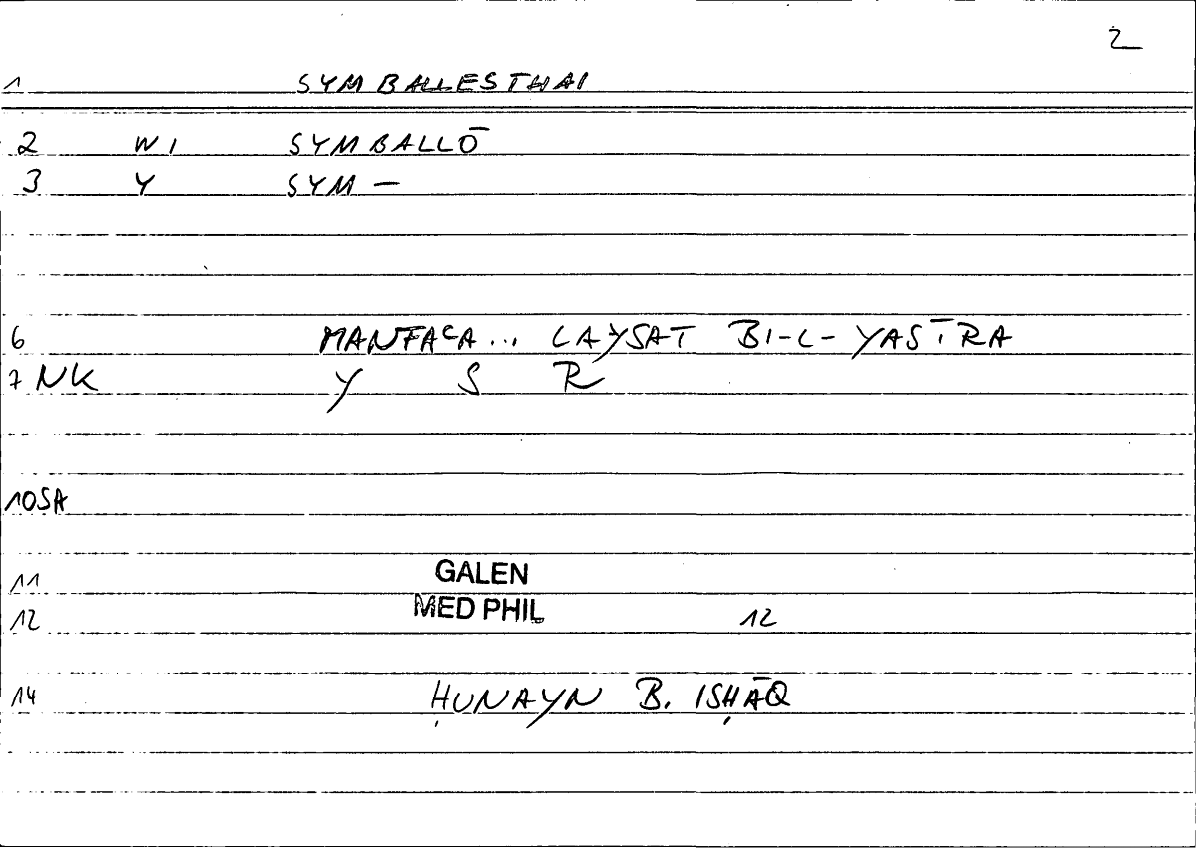 2
1 SYMBALLESTHAI
2 WI SYMBALLŌ
3 Y SYM —
6 MANFAʿA... LAYSAT BI-L-YASĪRA
7 NK Y S R
10 SA
11 GALEN
12 MED PHIL 12
14 ḤUNAYN B. ISḤĀQ